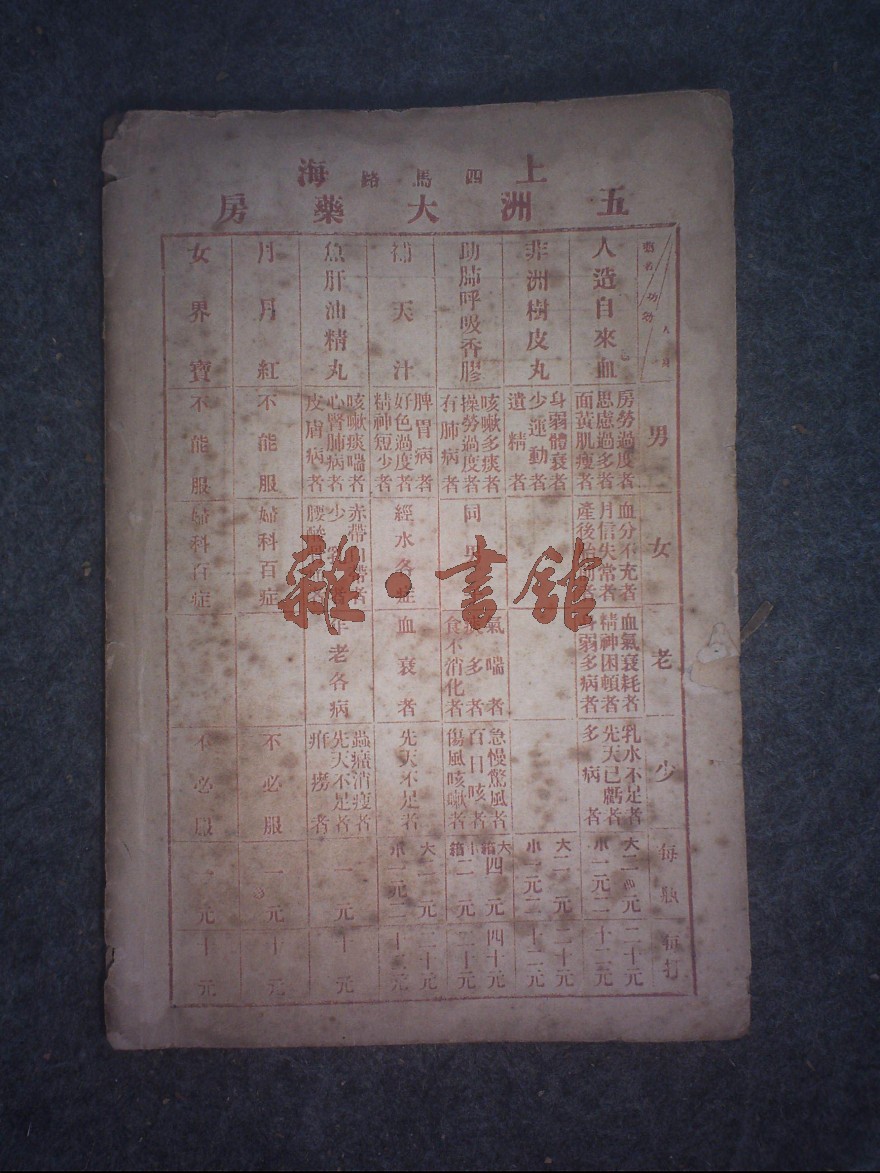 上四馬路海
五洲大藥房
藥名 功効 人身
男
女
老
少
每瓶
每打
人造自來血
房勞過度者
思慮過多者
面黃肌瘦者
血分不充者
月信失常者
血氣衰耗者
精神困頓者
身弱多病者
乳水不足者
先天已虧者
多病者
大二元
小一元二
二十元
十二元
非洲樹皮丸
身弱體衰者
少運動者
遺精者
大二元
小一元二
二十元
十二元
助肺呼吸香膠
咳嗽多痰者
操勞過度者
有肺病者
氣喘者
痰多者
食不消化者
急慢驚風者
百日咳者
傷風咳嗽者
大箱四元
小箱二元
四十元
二十元
補天汁
脾胃病者
好色過度者
精神短少者
經水各症
血衰者
先天不足者
大二元
小一元二
二十元
十二元
魚肝油精丸
咳嗽痰喘者
心腎肺病者
皮膚病者
年老各病
蟲積消瘦者
先天不足者
疳癆者
一元
十元
月月紅
不能服
婦科百症
不必服
一元
十元
女界寶
不能服
婦科百症
不必服
一元
十元
雜·書館